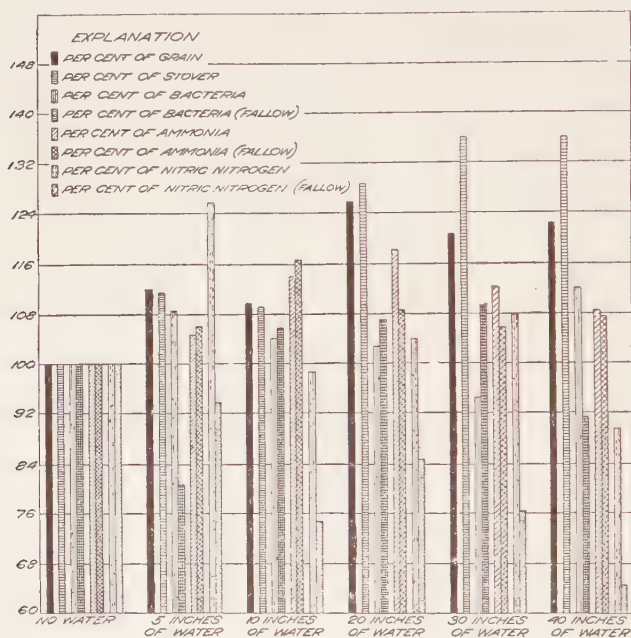 EXPLANATION
PER CENT OF GRAIN
PER CENT OF STOVER
PER CENT OF BACTERIA
PER CENT OF BACTERIA (FALLOW)
PER CENT OF AMMONIA
PER CENT OF AMMONIA (FALLOW)
PER CENT OF NITRIC NITROGEN
PER CENT OF NITRIC NITROGEN (FALLOW)
148
140
132
124
116
108
100
92
84
76
68
60
NO WATER
5 INCHES
OF WATER
10 INCHES
OF WATER
20 INCHES
OF WATER
30 INCHES
OF WATER
40 INCHES
OF WATER